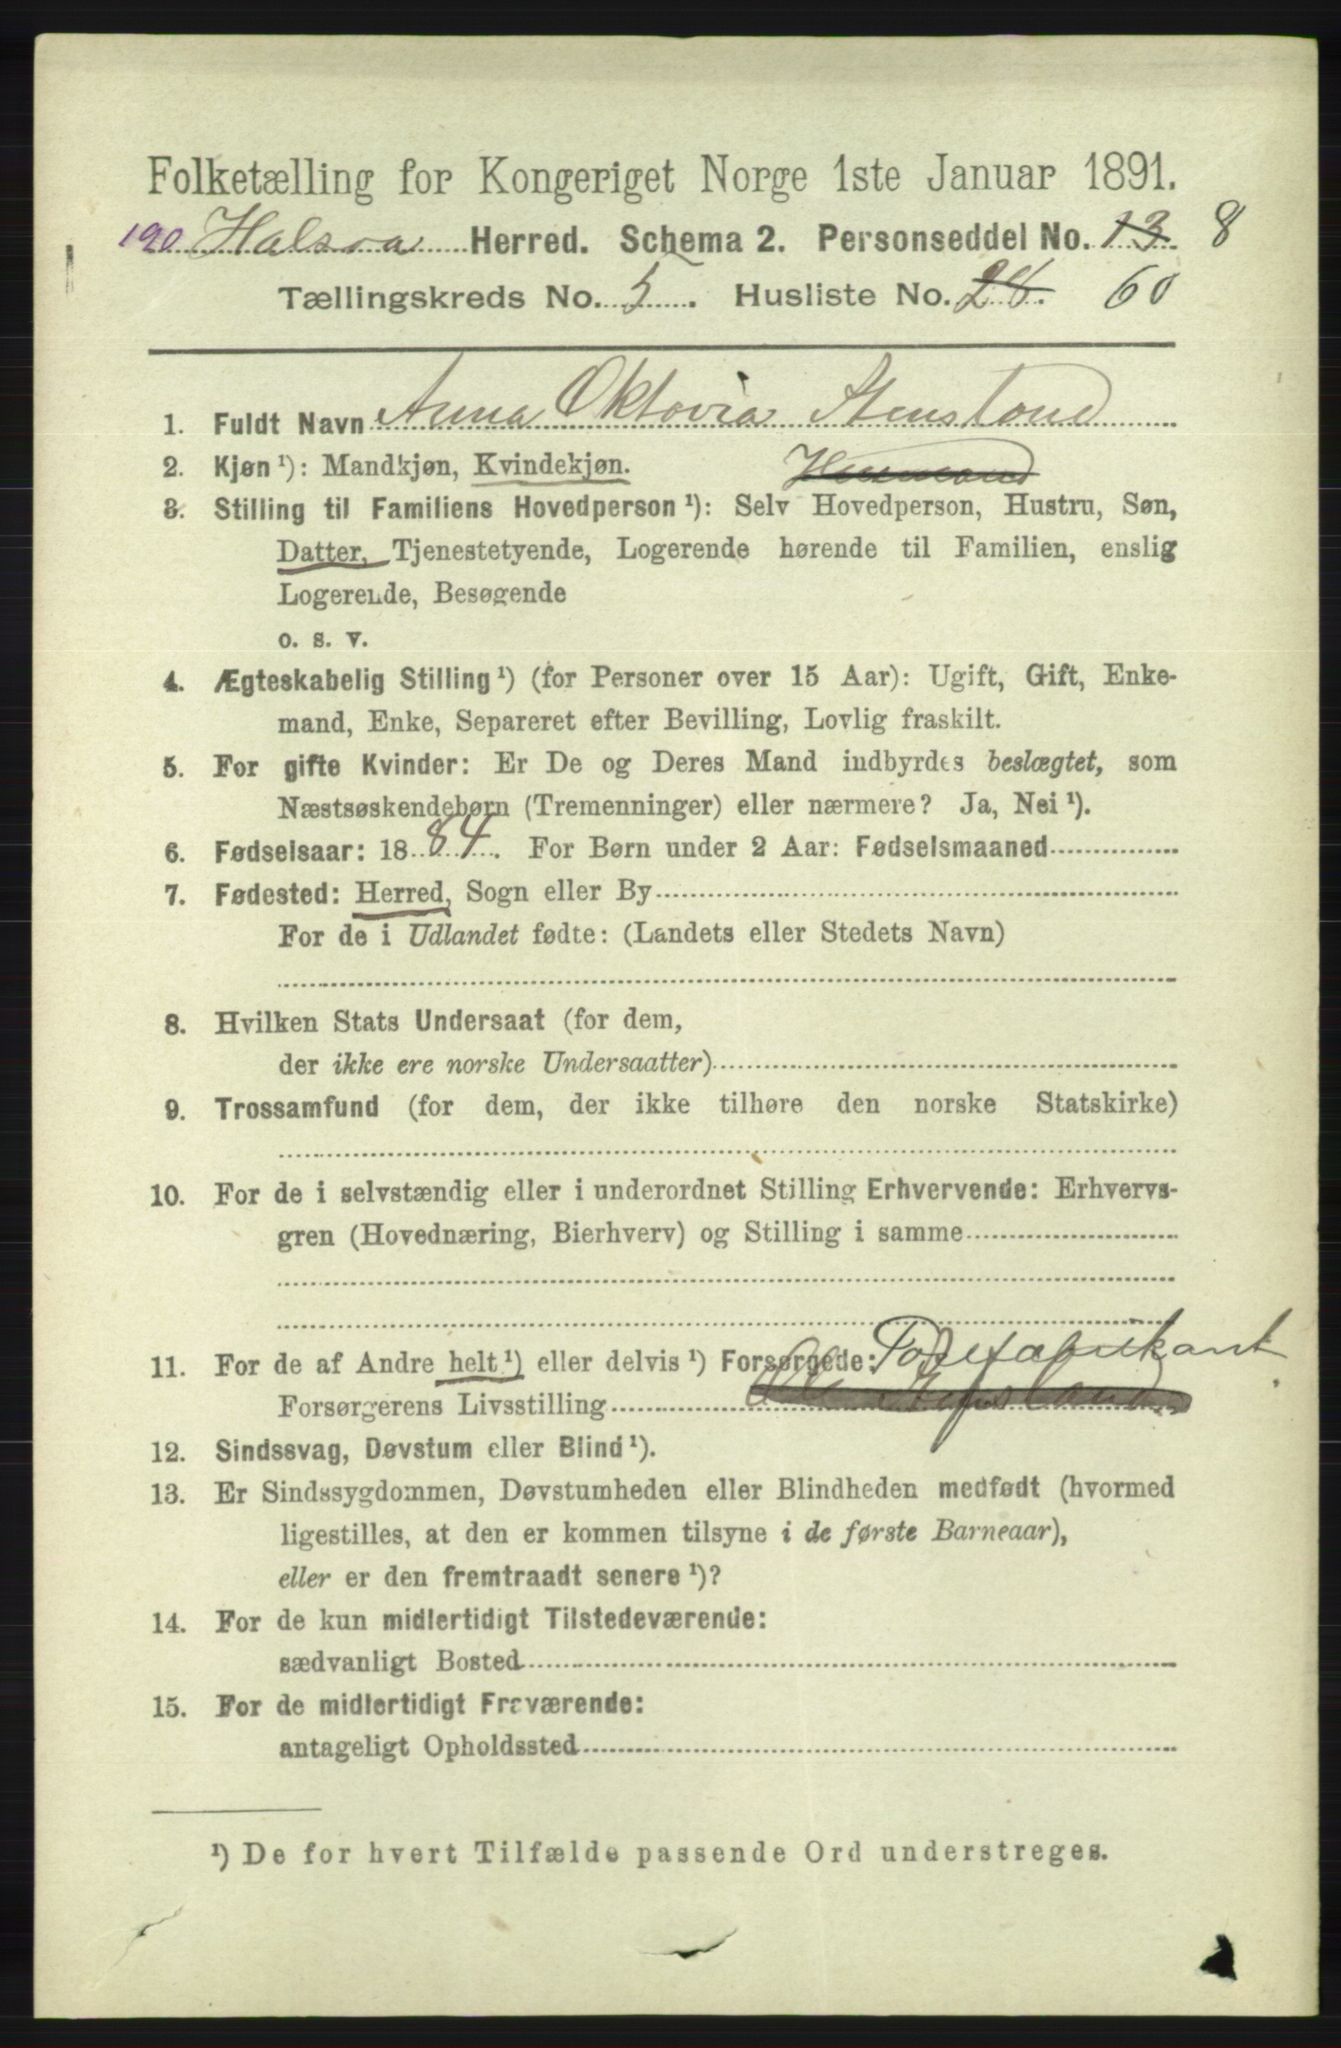 Folketælling for Kongeriget Norge 1ste Januar 1891.
190 Halsaa Herred. Schema 2. Personseddel No. 13. 8
Tællingskreds No. 5. Husliste No. 28. 60
1. Fuldt Navn Anna Oktovia Stensland
2. Kjøn ¹): Mandkjøn, Kvindekjøn.
3. Stilling til Familiens Hovedperson ¹): Selv Hovedperson, Hustru, Søn,
Datter, Tjenestetyende, Logerende hørende til Familien, enslig
Logerende, Besøgende
o. s. v.
4. Ægteskabelig Stilling ¹) (for Personer over 15 Aar): Ugift, Gift, Enke-
mand, Enke, Separeret efter Bevilling, Lovlig fraskilt.
5. For gifte Kvinder: Er De og Deres Mand indbyrdes beslægtet, som
Næstsøskendebørn (Tremenninger) eller nærmere? Ja, Nei ¹).
6. Fødselsaar: 1884. For Børn under 2 Aar: Fødselsmaaned
7. Fødested: Herred, Sogn eller By
For de i Udlandet fødte: (Landets eller Stedets Navn)
8. Hvilken Stats Undersaat (for dem,
der ikke ere norske Undersaatter)
9. Trossamfund (for dem, der ikke tilhøre den norske Statskirke)
10. For de i selvstændig eller i underordnet Stilling Erhvervende: Erhvervs-
gren (Hovednæring, Bierhverv) og Stilling i samme
11. For de af Andre helt ¹) eller delvis ¹) Forsørgede:
Forsørgerens Livsstilling Ole Stensland
12. Sindssvag, Døvstum eller Blind ¹).
13. Er Sindssygdommen, Døvstumheden eller Blindheden medfødt (hvormed
ligestilles, at den er kommen tilsyne i de første Barneaar),
eller er den fremtraadt senere ¹)?
14. For de kun midlertidigt Tilstedeværende:
sædvanligt Bosted
15. For de midlertidigt Fraværende:
antageligt Opholdssted
¹) De for hvert Tilfælde passende Ord understreges.